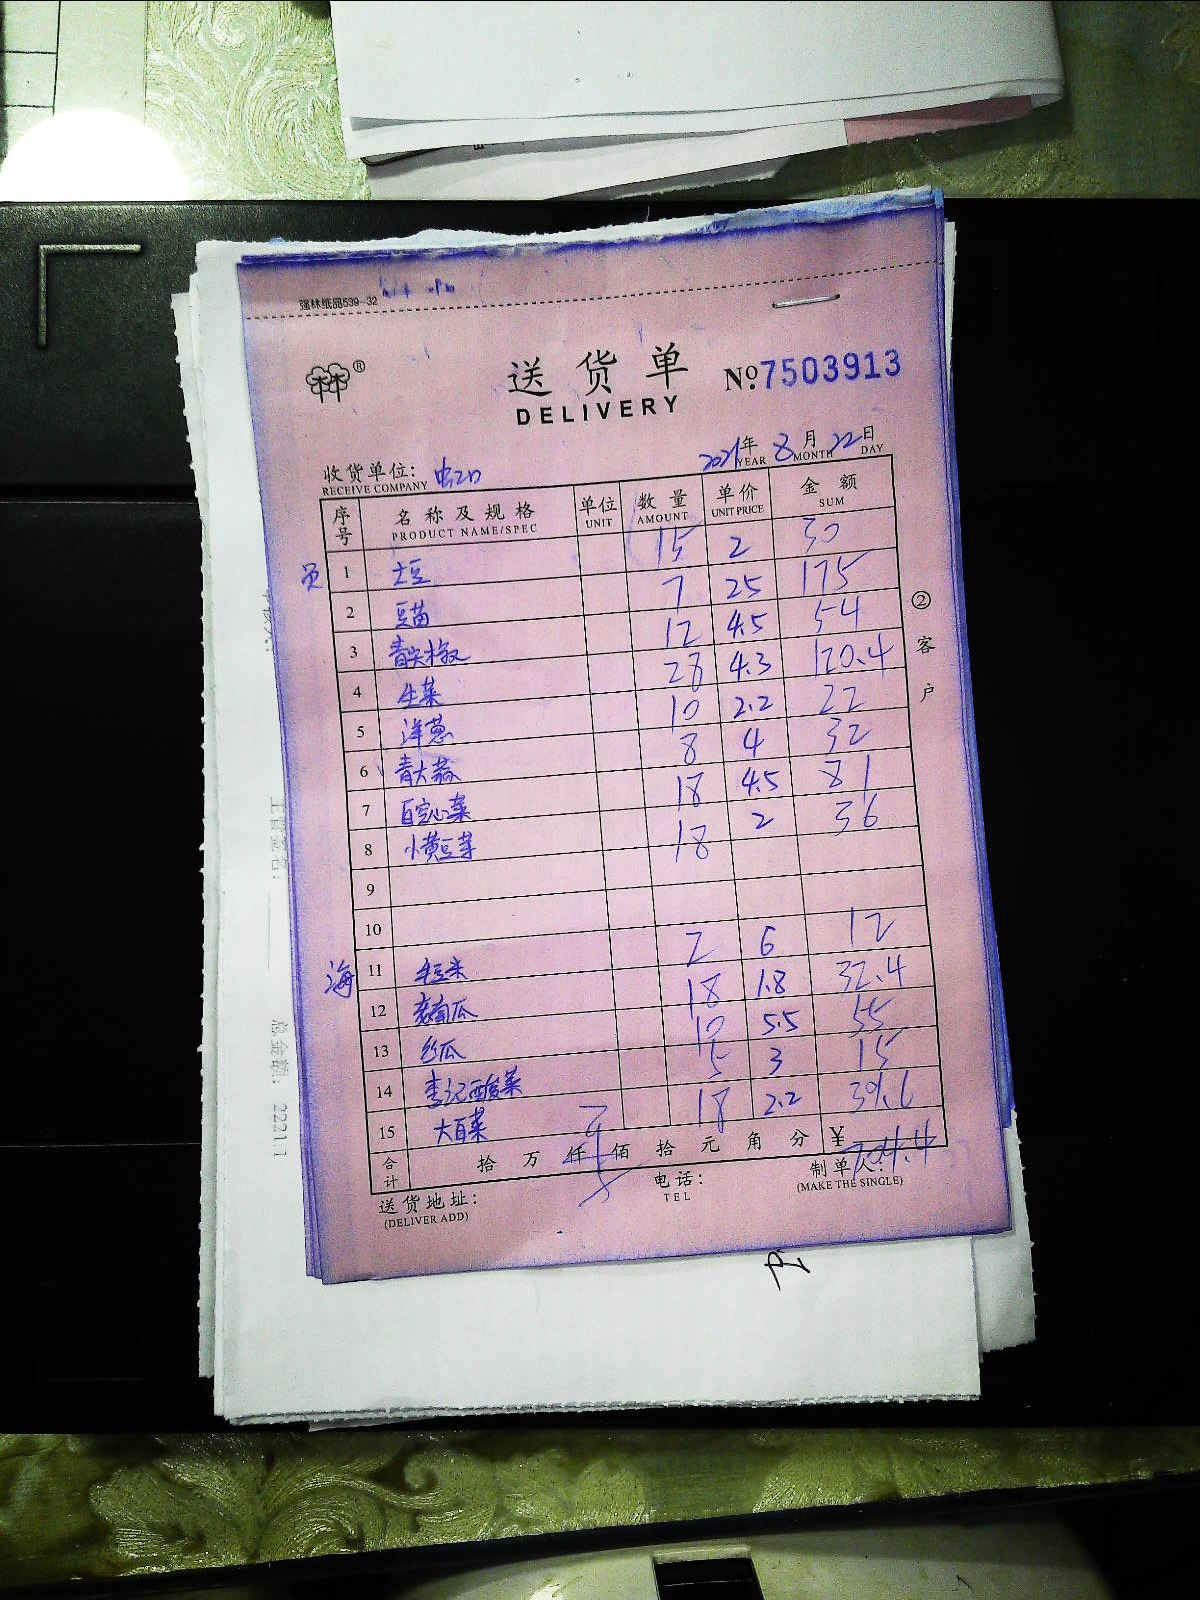 强林纸品539-32
林®
送货单
DELIVERY
No.7503913
2021年 8月 22日
YEAR MONTH DAY
收货单位: 虹口
RECEIVE COMPANY
序号 名称及规格 单位 数量 单价 金额
PRODUCT NAME/SPEC UNIT AMOUNT UNIT PRICE SUM
员 1 土豆 15 2 30
2 豆苗 7 25 175
3 青尖椒 12 4.5 54
4 生菜 28 4.3 120.4
5 洋葱 10 2.2 22
6 青大蒜 8 4 32
7 白空心菜 18 4.5 81
8 小黄豆芽 18 2 36
9
10
海 11 2 6 12
12 老南瓜 18 1.8 32.4
13 丝瓜 10 5.5 55
14 李记酸菜 5 3 15
15 大白菜 18 2.2 39.6
合计 拾 万 仟 佰 拾 元 角 分 ¥704.4
送货地址: 电话: 制单人:
(DELIVER ADD) TEL (MAKE THE SINGLE)
②客户
主管签名:
总金额: 2221.1